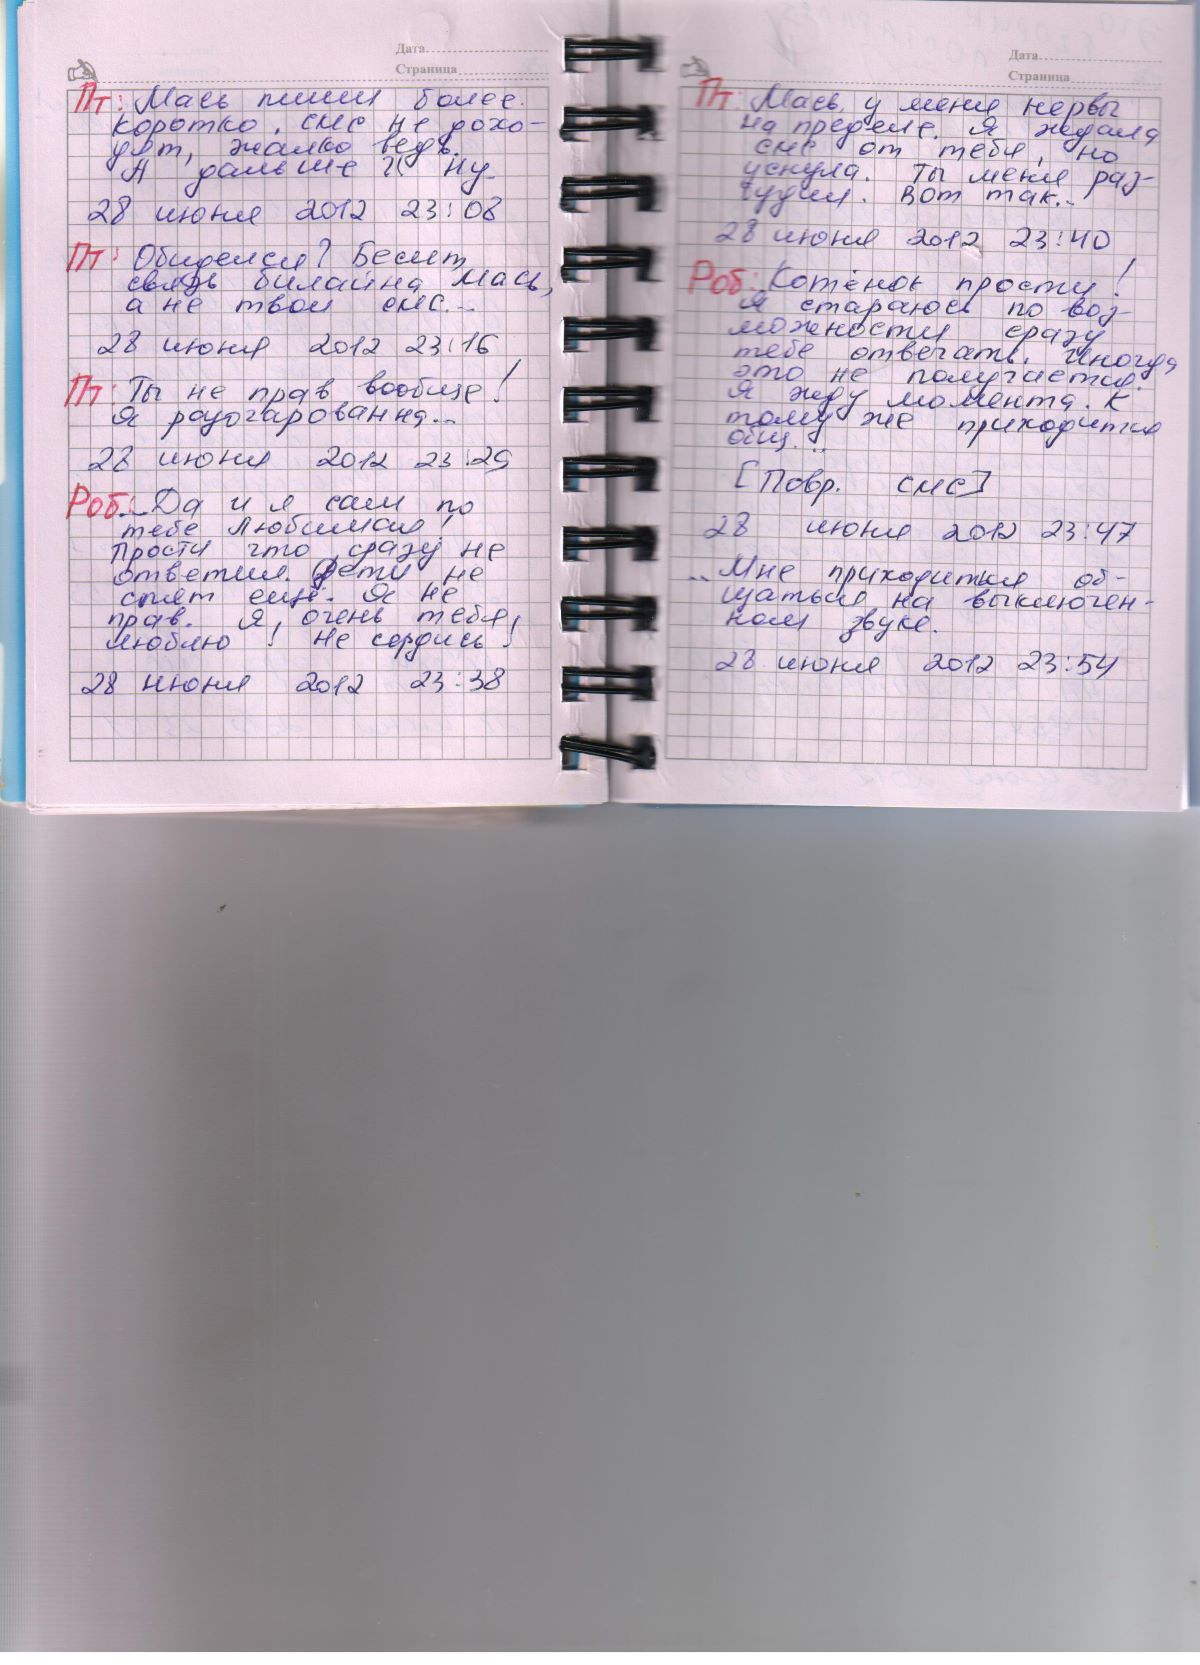 Дата
Страница
Пт: Мась пиши более
коротко, смс не дохо-
дят, жалко ведь.
А дальше?! Ну..
28 июня 2012 23:08
Пт: Обиделся? Бесит
связь билайна Мась,
а не твои смс...
28 июня 2012 23:16
Пт: Ты не прав вообще!
Я разочарованна...
28 июня 2012 23:29
Роб:...Да и я сам по
тебе Любимая!
Прости что сразу не
ответил. Дети не
спят ещё. Я не
прав. Я очень тебя
люблю! Не сердись!
28 июня 2012 23:38
Дата
Страница
Пт: Мась, у меня нервы
на пределе. Я ждала
смс от тебя, но
уснула. Ты меня раз-
будил. Вот так...
28 июня 2012 23:40
Роб: Котёнок прости!
Я стараюсь по воз-
можности сразу
тебе отвечать. Иногда
это не получается.
Я жду момента. К
тому же приходится
общ...
[Повр. смс]
28 июня 2012 23:47
..Мне приходится об-
щаться на выключен-
ном звуке.
28 июня 2012 23:54